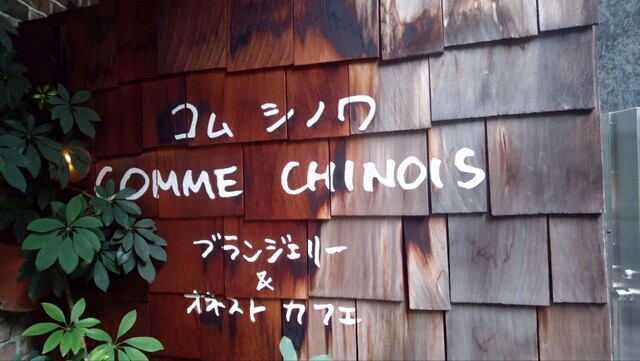 コム シノワ
COMME CHINOIS
ブランジェリー
&
オネスト カフェ